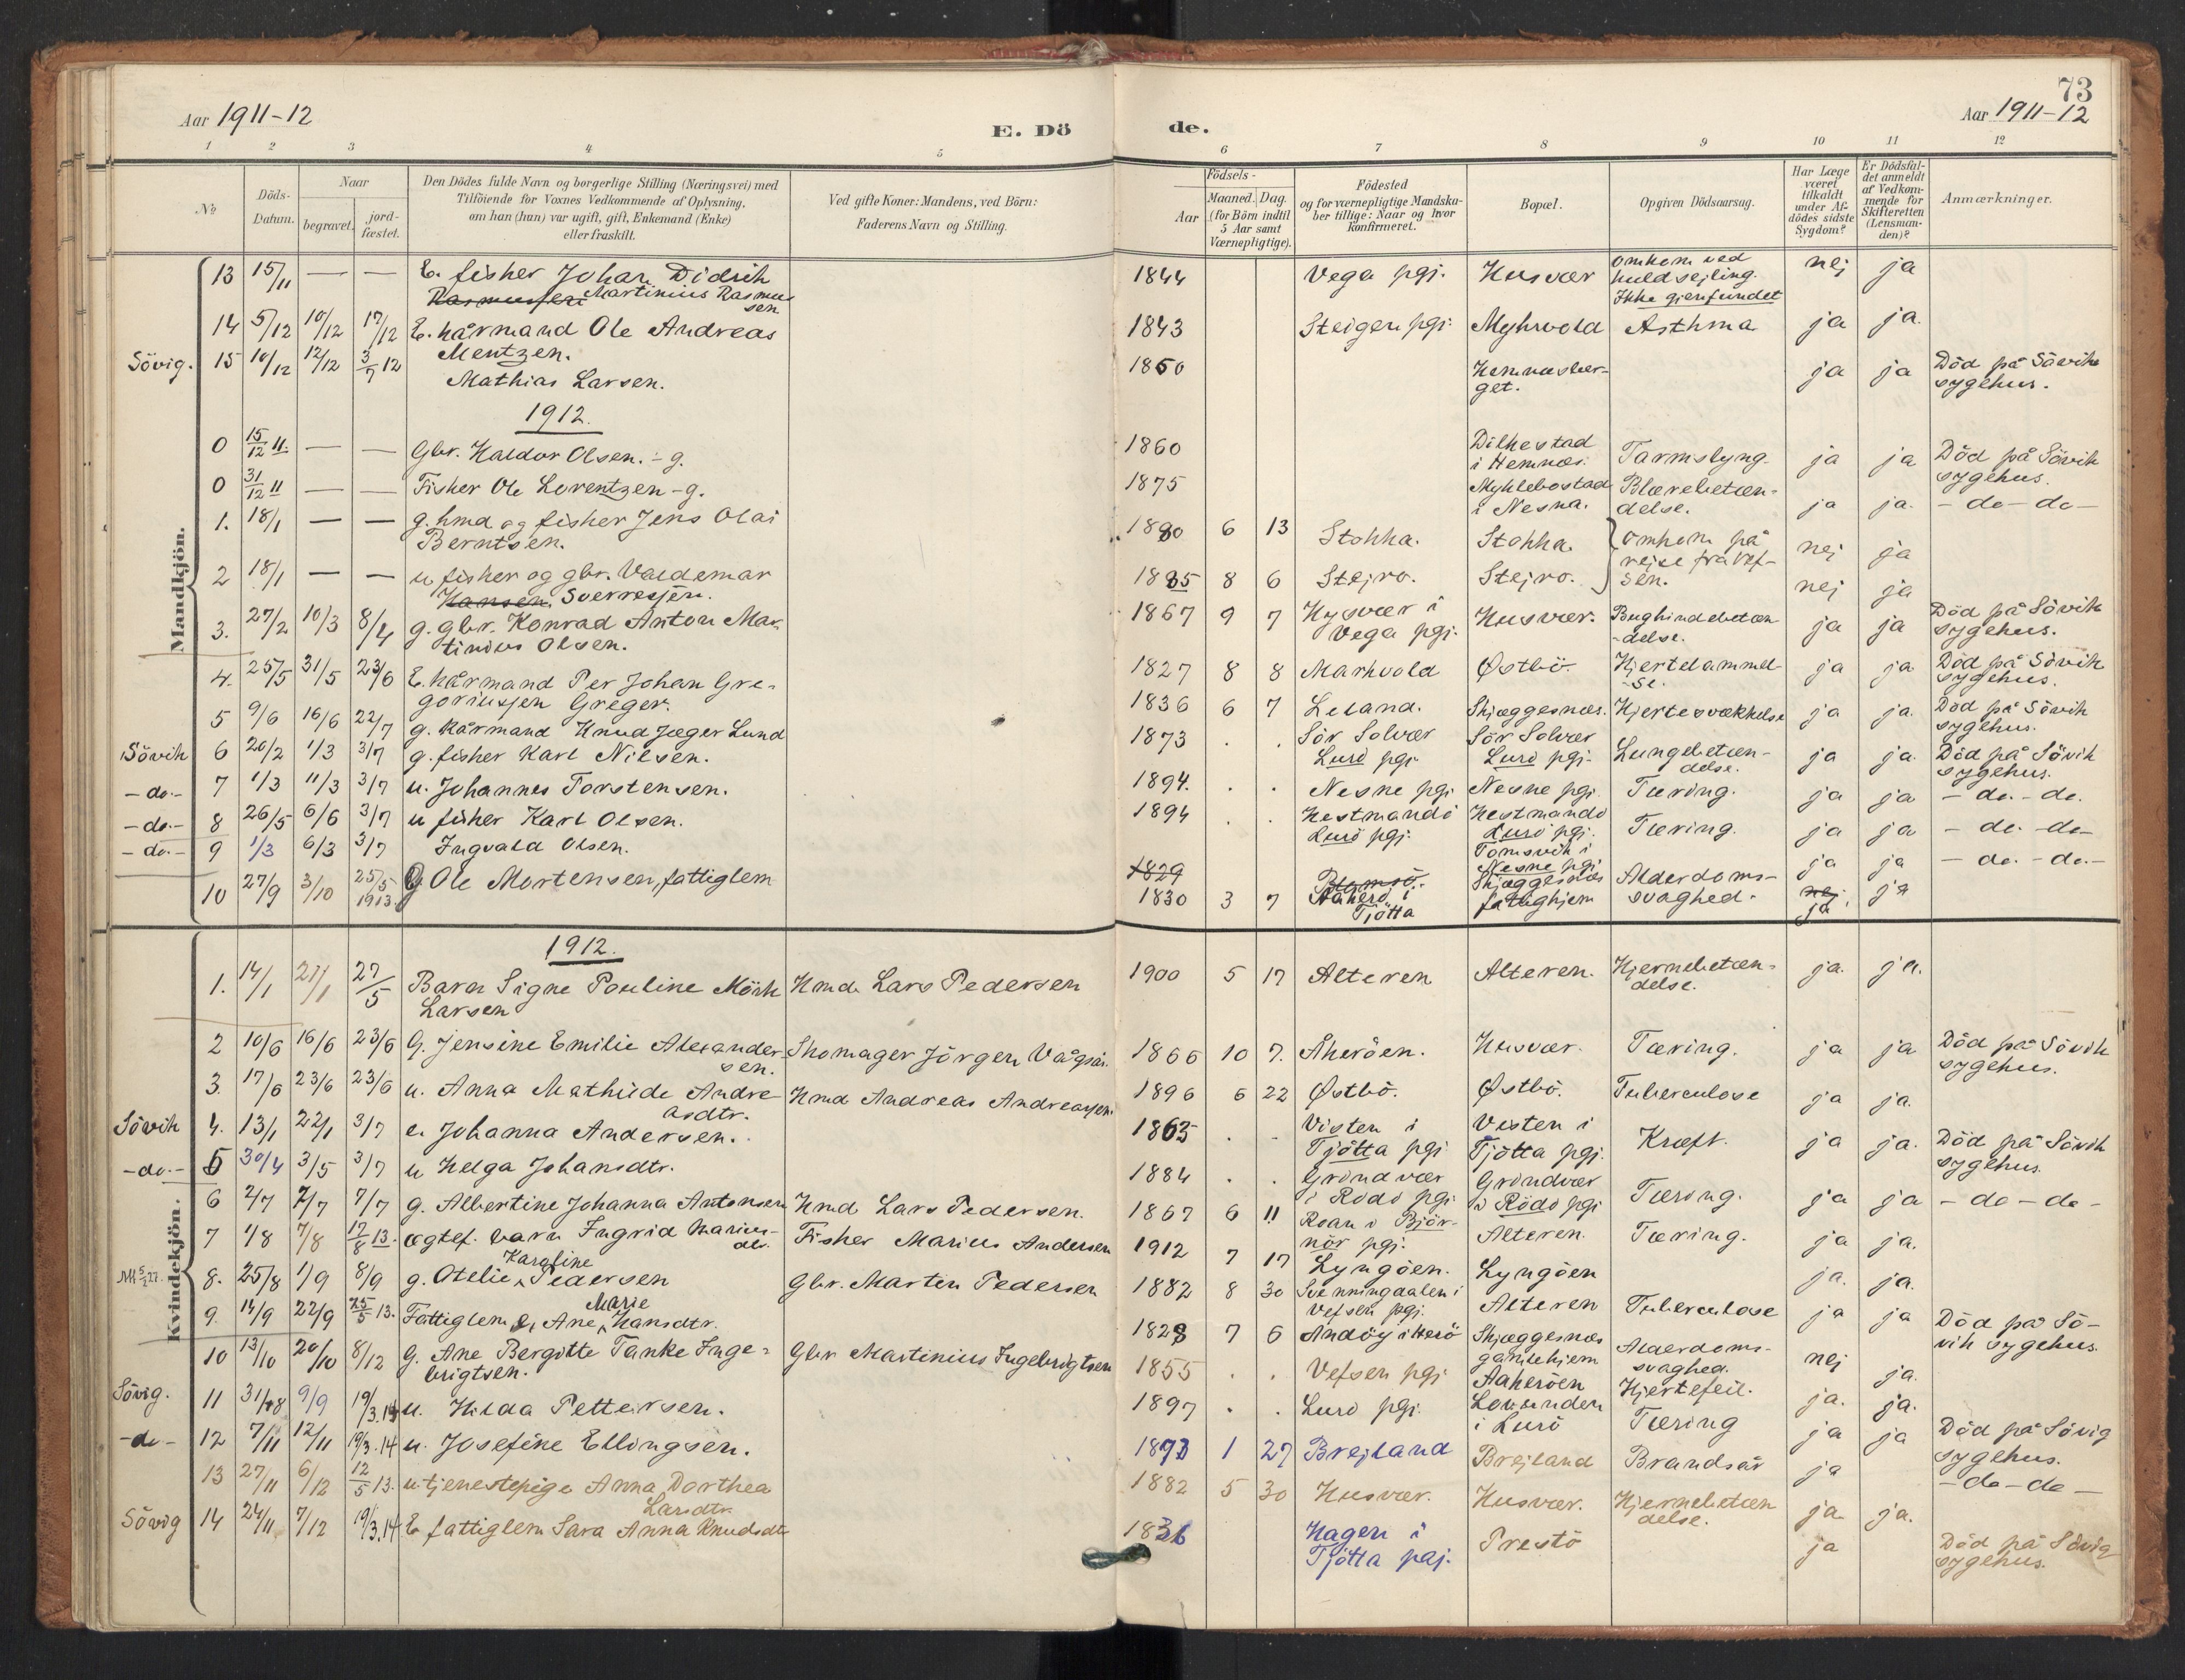 Aar 1911-12
E. Dö
de.
73
Aar 1911-12
1 2 3 4 5 6 7 8 9 10 11 12
No
Döds-Datum.
Naar
begravet.
jord-fæstet.
Den Dödes fulde Navn og borgerlige Stilling (Næringsvei) med
Tilföiende for Voxnes Vedkommende af Oplysning,
om han (hun) var ugift, gift, Enkemand (Enke)
eller fraskilt.
Ved gifte Koner: Mandens, ved Börn:
Faderens Navn og Stilling.
Födsels-
Aar
Maaned. Dag.
(for Börn indtil
5 Aar samt
Værnepligtige).
Födested
og for værnepligtige Mandska-
ber tillige: Naar og hvor
konfirmeret.
Bopæl.
Opgiven Dödsaarsag.
Har Læge
været
tilkaldt
under Af-
dödes sidste
Sygdom?
Er Dödsfal-
det anmeldt
af Vedkom-
mende for
Skifteretten
(Lensman-
den)?
Anmærkninger.
Mandkjön.
13 15/11 — — E. fisker Johan Didrik
Rasmussen Martinius Rasmus
sen
1844 Vega pgj. Husvær omkom ved
kuldsejling.
Ikke gjenfundet nej ja
14 5/12 10/12 17/12 E. kårmand Ole Andreas
Mentzen.
1843 Steigen pgj. Myhrvold Asthma ja ja.
Sövig. 15 10/12 12/12 3/7 12 Mathias Larsen.
1850 Hemnesber-
get. ja ja Död på Sövik
sygehus.
1912.
0 15/12 11. — — Gbr. Haldor Olsen. - g.
1860 Dilkestad
i Hemnæs. Tarmslyng. ja ja Död på Sövik
sygehus.
0 31/12 11 — — Fisker Ole Lorentzen - g.
1875 Myklebostad
i Nesna. Blærebetæn-
delse. ja ja. - do - do -
1. 18/1 — — g. hmd og fisker Jens Olai
Berntsen.
1880 6 13 Stokka. Stokka. omkom på
rejse fra Vef-
sen. nej ja
2 18/1 — — u fisker og gbr. Valdemar
Hansen. Sverresen.
1885 8 6 Stejro. Stejro. nej ja
3. 27/2 10/3 8/4 g. gbr. Konrad Anton Mar-
tinius Olsen.
1867 9 7 Husvær i
Vega pgj. Husvær. Bughindebetæn
-delse. ja ja Död på Sövik
sygehus.
4. 25/5 31/5 23/6 E. kårmand Per Johan Gre-
goriusen Greger.
1827 8 8 Markvold Østbö. Hjertelammel
-se. ja ja Död på Sövik
sygehus.
5 9/6 16/6 22/7 g. kårmand Knud Jæger Lund
1836 6 7 Leland. Skjæggesnæs. Hjertesvækkelse ja ja. Död på Sövik
sygehus.
Sövik 6 20/2 1/3 3/7 g. fisker Karl Nilsen.
1873 . . Sör Solvær
Lurö pgj. Sör Solvær
Lurö pgj. Lungebetæn-
delse. ja ja. Död på Sövik
sygehus.
-do.- 7 1/3 11/3 3/7 u. Johannes Torstensen.
1894. . . Nesne pgj. Nesne pgj. Tæring. ja ja - do. - do.
-do.- 8 26/5 6/6 3/7 u fisker Karl Olsen.
1894 . . Hestmandö
Lurö pgj. Hestmandö
Lurö pgj. Tæring. ja ja - do. - do -
-do.- 9 1/3 6/3 3/7 Ingvald Olsen.
Tomsvik i
Nesne pgj. ja ja - do. - do. -
10 27/9 3/10 25/5 1913. g Ole Mortensen, fattiglem
1829
1830 3 7 Åkerö i
Tjötta Skjæggesnæs
fattighjem Alderdoms-
svaghed. nej.
ja ja
Kvindekjön.
1912.
1. 14/1 21/1 27/5 Barn Signe Pouline Mörk
Larsen Hmd. Lars Pedersen
1900 5 17 Alteren Alteren. Hjernebetæn-
delse. ja. ja.
2 10/6 16/6 23/6 G. Jensine Emilie Alexander-
sen. Skomager Jörgen Vågsås.
1866 10 7. Åkeröen. Husvær. Tæring. ja ja Död på Sövik
sygehus.
3. 17/6 23/6 23/6 u. Anna Mathilde Andre
asdtr. Hmd Andreas Andreassen.
1896 6 22 Østbö. Østbö. Tuberculose ja ja.
Sövik 4. 13/1 22/1 3/7 e. Johanna Andersen.
1863 . - Visten i
Tjötta pgj. Visten i
Tjötta pgj. Kræft. ja ja. Död på Sövik
sygehus.
-do.- 5 30/4 3/5 3/7 u Helga Johansdtr.
1884 . . Gröndvær
i Rödö pgj. Gröndvær
i Rödö pgj Tæring. ja ja - do - do -
6 2/7 7/7 7/7 g. Albertine Johanna Antonsen Hmd Lars Pedersen.
1867 6 11 Roan i Björ-
nör pgj. Alteren. Tæring. ja ja.
7 1/8 7/8 17/8 13. ægtef. barn Ingrid Marius-
dtr. Fisker Marius Andersen
1912 7 17 Lyngöen. Lyngöen ja. ja.
NK 5/2 27. 8. 25/8 1/9 8/9 g. Otelie Karoline Pedersen Gbr. Morten Pedersen
1882 8 30 Svenningdalen i
Vefsen pgj. Alteren Tuberculose ja ja Död på Sö-
vik sygehus.
9. 14/9 22/9 25/5 13. Fattiglem e, Ane Marie Hansdtr.
1828 7 6 Andöy i Herö Skjæggesnæs
gamlehjem Alderdoms-
svaghed. nej ja.
10 13/10 20/10 8/12 G. Ane Bergitte Tanke Inge-
brigtsen. Gbr Martinius Ingebrigtsen
1855 . . Vefsen pgj Aakeröen Hjertefeil. ja. ja.
Sövig. 11 31/8 9/9 19/3.14 u. Hilda Pettersen.
1897 . . Lurö pgj. Lovunden
i Lurö Tæring ja ja Död på Sövig
sygehus.
-do- 12 7/11 12/11 19/3.14 u. Josefine Ellingsen.
1873 1 27 Brejland Brejland Brandsår ja - do - do -
13 27/11 6/12 12/5 13. u. tjenestepige Anna Dorthea
Larsdtr.
1882 5 30 Husvær. Husvær. Hjernebetæn
delse. ja. ja.
Sövig 14 24/11 7/12 19/3.14 E fattiglem Sara Anna Knudsdt
1836 Hagen i
Tjötta pgj. Prestö ja Död på Sövig
sygehus.